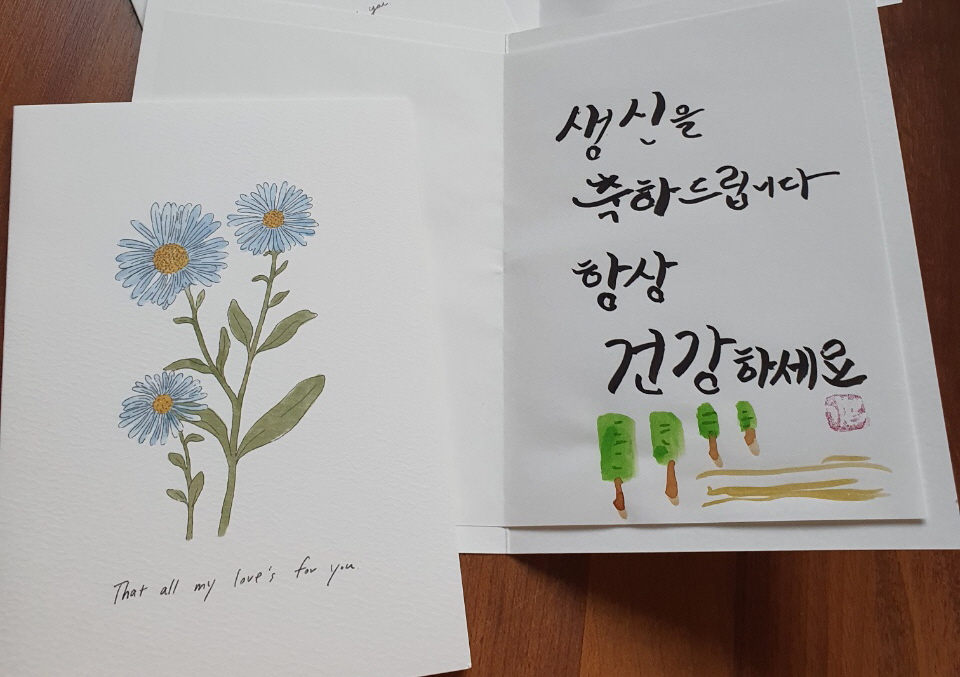 생신을
축하드립니다
항상
건강하세요
That all my love's for you